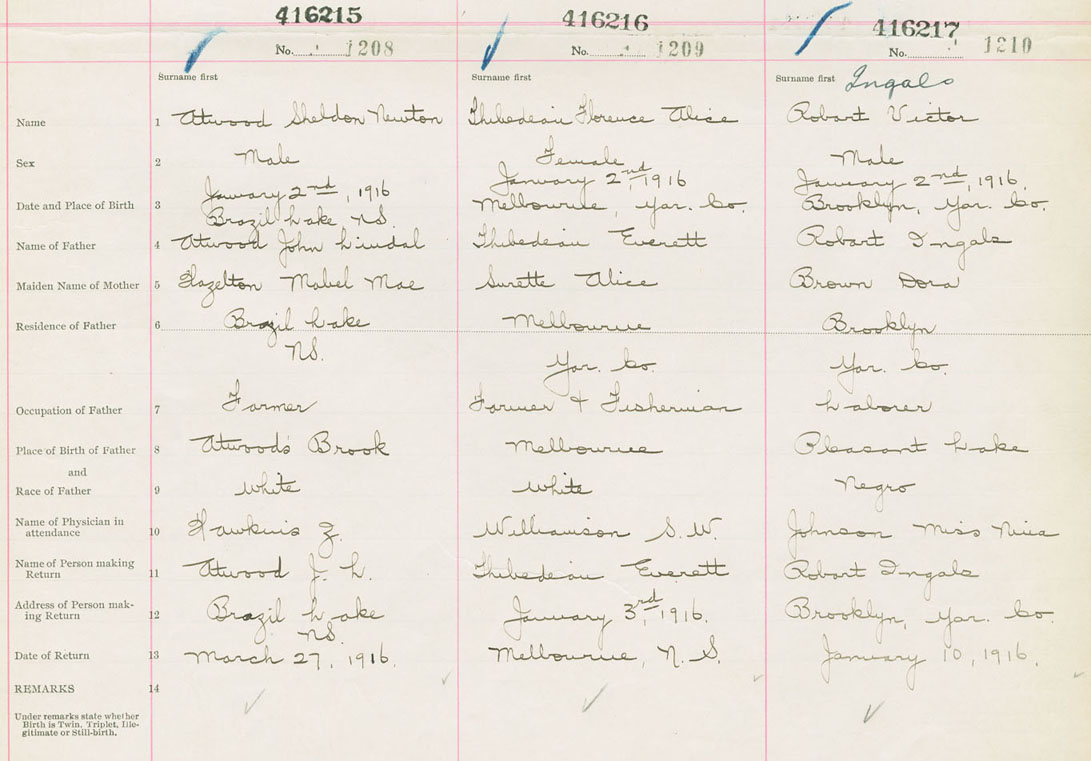 416215 416216 416217
No. 1208 No. 1209 No. 1210
Surname first Surname first Surname first Ingals
Name 1 Atwood Sheldon Newton Thibedeau Florence Alice Robart Victor
Sex 2 Male Female Male
January 2nd, 1916 January 2nd, 1916 January 2nd, 1916.
Date and Place of Birth 3 Brazil Lake NS Melbourne, Yar. Co. Brooklyn, Yar. Co.
Name of Father 4 Atwood John Lindal Thibedeau Everett Robart Ingals
Maiden Name of Mother 5 Hazelton Mabel Mae Surette Alice Brown Dora
Residence of Father 6 Brazil Lake Melbourne Brooklyn
NS. Yar. Co. Yar. Co.
Occupation of Father 7 Farmer Farmer & Fisherman Laborer
Place of Birth of Father 8 Atwood's Brook Melbourne Pleasant Lake
and
Race of Father 9 White White Negro
Name of Physician in
attendance 10 Hawkins Z. Williamson S. W. Johnson Miss Nina
Name of Person making
Return 11 Atwood J. L. Thibedeau Everett Robart Ingals
Address of Person mak-
ing Return 12 Brazil Lake January 3rd, 1916. Brooklyn, Yar. Co.
NS.
Date of Return 13 March 27, 1916. Melbourne, N. S. January 10, 1916.
REMARKS 14
Under remarks state whether
Birth is Twin, Triplet, Ille-
gitimate or Still-birth.